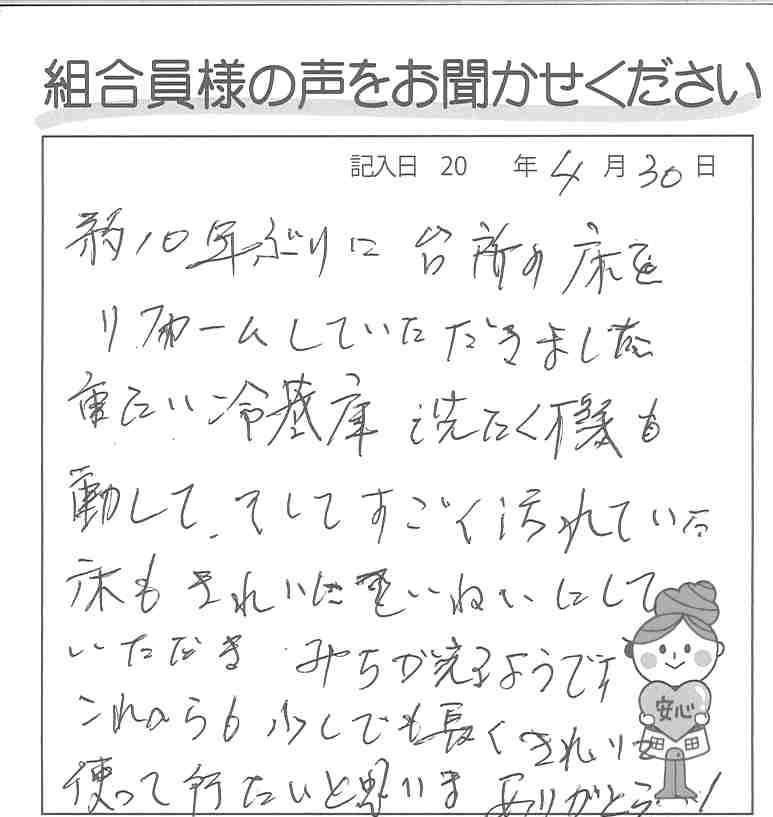 組合員様の声をお聞かせください
記入日 20 年 4月30日
約10年ぶりに 台所の床を
リフォームしていただきました
重たい冷蔵庫 洗たく機も
動して、そしてすごく汚れている
床もきれいにていねいにして
いただき みちが完るようです
これからも少しでも長くきれいに
使って行たいと思います ありがとう!
安心